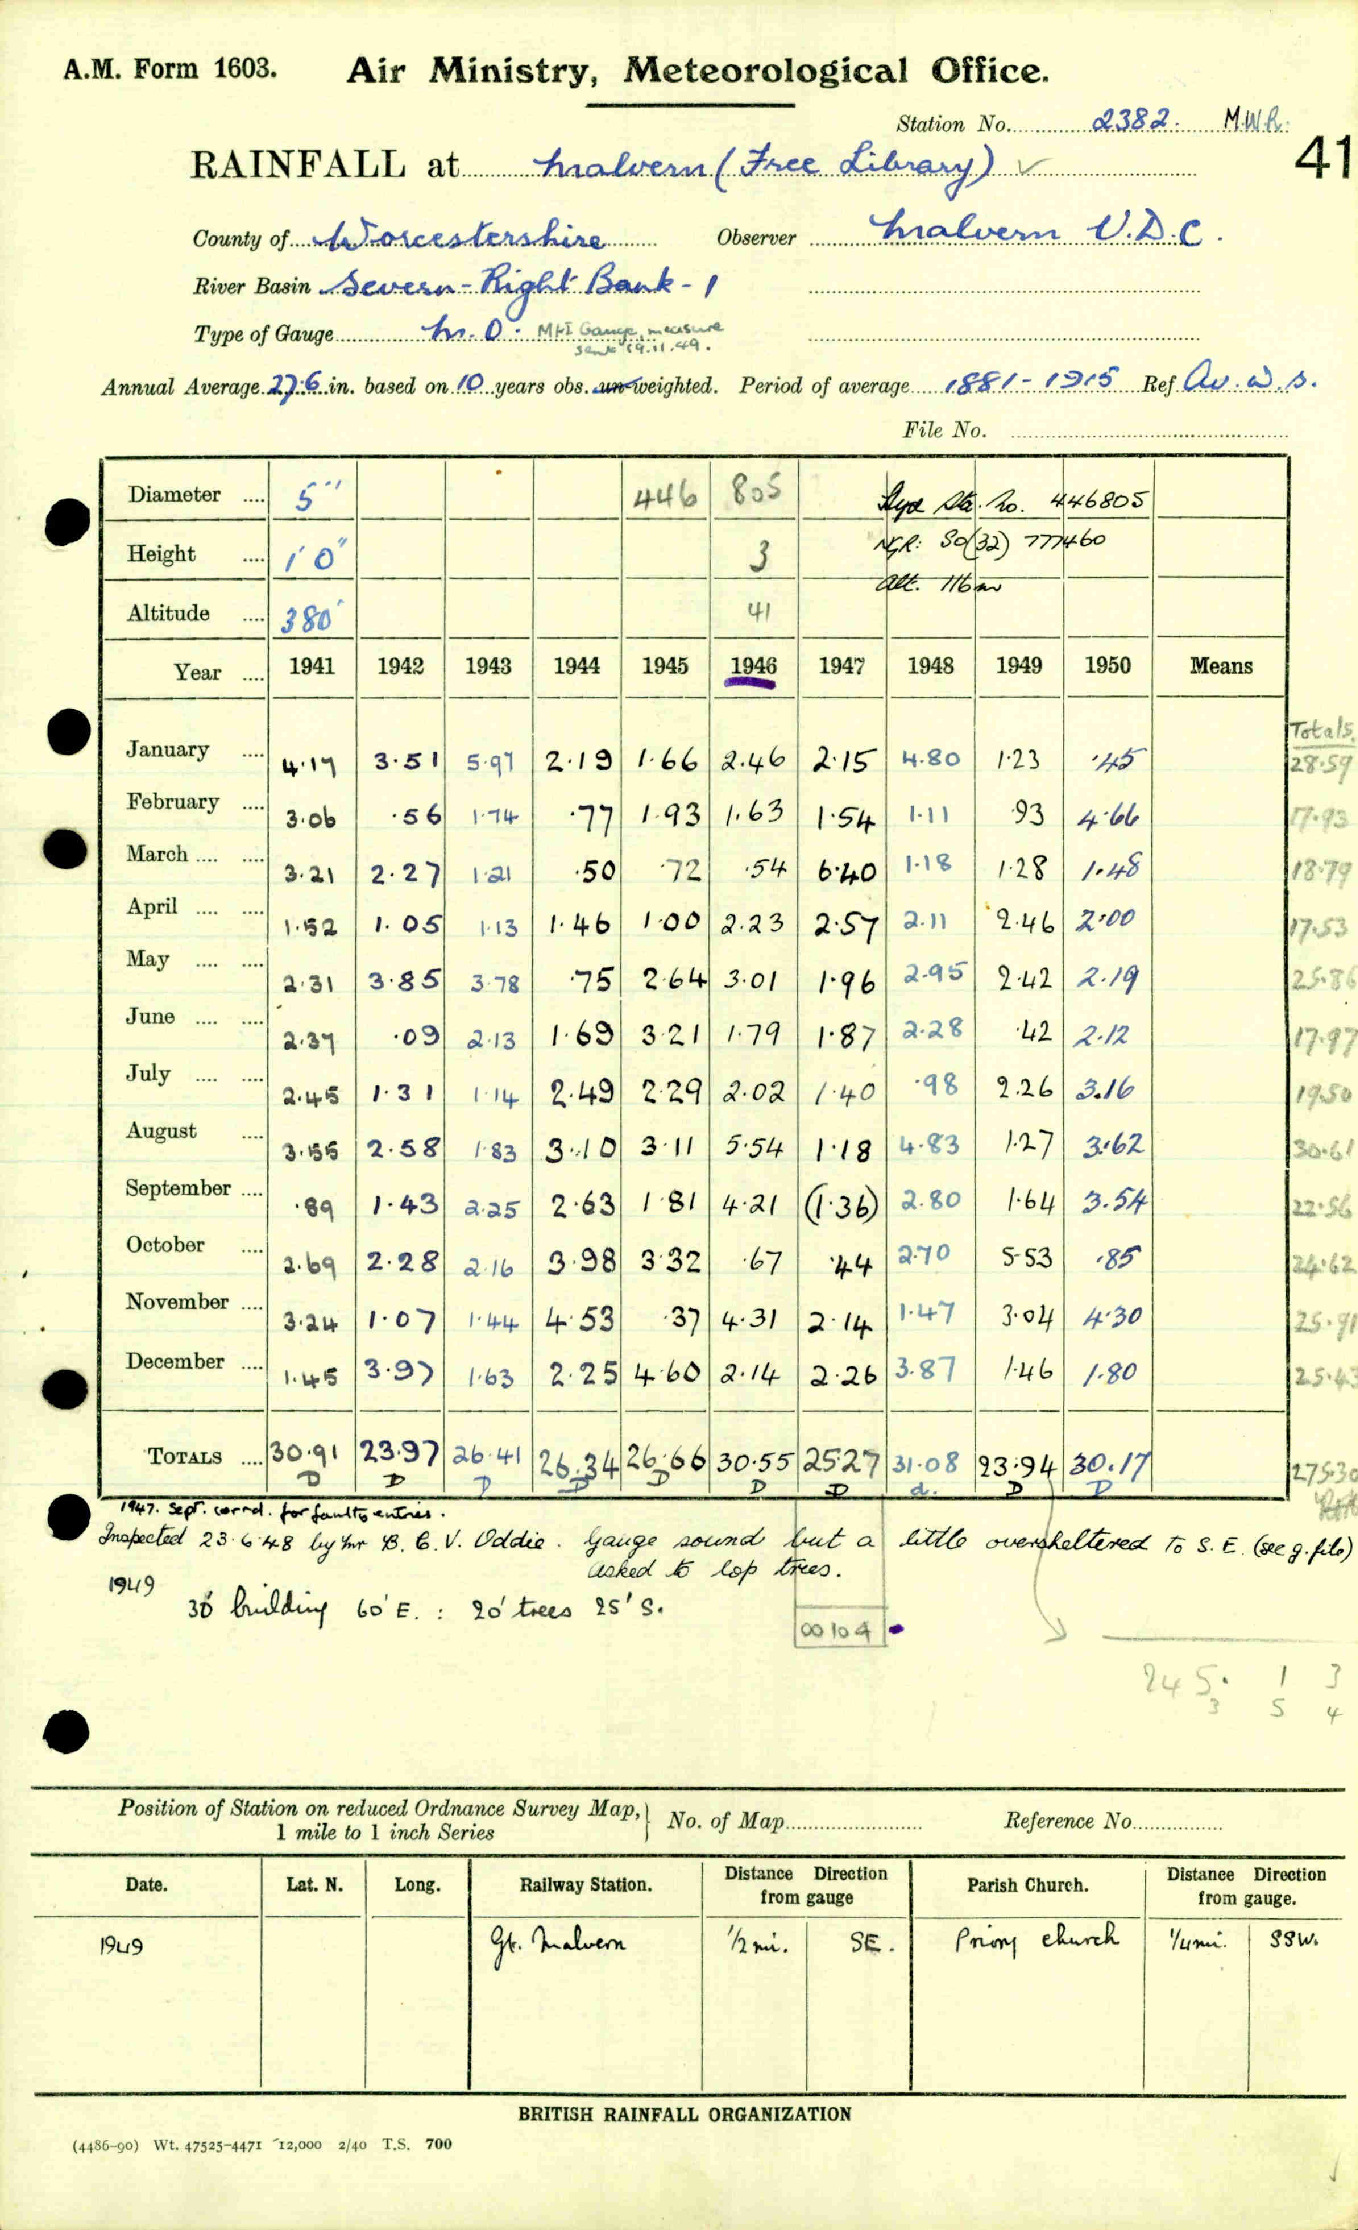 A.M. Form 1603. Air Ministry, Meteorological Office.
Station No. 2382. M.W.R.
RAINFALL at Malvern (Free Library) ✓ 41
County of Worcestershire Observer Malvern U.D.C.
River Basin Severn - Right Bank - 1
Type of Gauge M.O. MkI Gauge, measure
sent 19.11.49.
Annual Average 27.6 in. based on 10 years obs. un-weighted. Period of average 1881-1915 Ref Av. W. S.
File No.
Diameter .... 5" 446 805 Hyd Sta. No. 446805
Height .... 1' 0" 3 NGR: SO(32) 777460
Altitude .... 380' 41 Alt. 116m
Year .... 1941 1942 1943 1944 1945 1946 1947 1948 1949 1950 Means
Totals
January .... 4.17 3.51 5.97 2.19 1.66 2.46 2.15 4.80 1.23 .45 28.59
February .... 3.06 .56 1.74 .77 1.93 1.63 1.54 1.11 .93 4.66 17.93
March .... .... 3.21 2.27 1.21 .50 .72 .54 6.40 1.18 1.28 1.48 18.79
April .... .... 1.52 1.05 1.13 1.46 1.00 2.23 2.57 2.11 2.46 2.00 17.53
May .... .... 2.31 3.85 3.78 .75 2.64 3.01 1.96 2.95 2.42 2.19 25.86
June .... .... 2.37 .09 2.13 1.69 3.21 1.79 1.87 2.28 .42 2.12 17.97
July .... .... 2.45 1.31 1.14 2.49 2.29 2.02 1.40 .98 2.26 3.16 19.50
August .... 3.55 2.58 1.83 3.10 3.11 5.54 1.18 4.83 1.27 3.62 30.61
September .... .89 1.43 2.25 2.63 1.81 4.21 (1.36) 2.80 1.64 3.54 22.56
October .... 2.69 2.28 2.16 3.98 3.32 .67 .44 2.70 5.53 .85 24.62
November .... 3.24 1.07 1.44 4.53 .37 4.31 2.14 1.47 3.04 4.30 25.91
December .... 1.45 3.97 1.63 2.25 4.60 2.14 2.26 3.87 1.46 1.80 25.43
TOTALS .... 30.91 23.97 26.41 26.34 26.66 30.55 25.27 31.08 23.94 30.17 275.30
D D D D D D D d. D D
1947. Sept. corrd. for faulty entries.
Inspected 23.6.48 by Mr B. C. V. Oddie. Gauge sound but a little oversheltered to S.E. (see g. file)
asked to lop trees.
1949
30' building 60' E. : 20' trees 25' S.
00104
245. 1 3
3 5 4
Position of Station on reduced Ordnance Survey Map, No. of Map Reference No
1 mile to 1 inch Series
Date. Lat. N. Long. Railway Station. Distance Direction from gauge Parish Church. Distance Direction from gauge.
1949 Gt. Malvern 1/2 mi. SE. Priory church 1/4 mi. SSW.
BRITISH RAINFALL ORGANIZATION
(4486-90) Wt. 47525-4471 12,000 2/40 T.S. 700